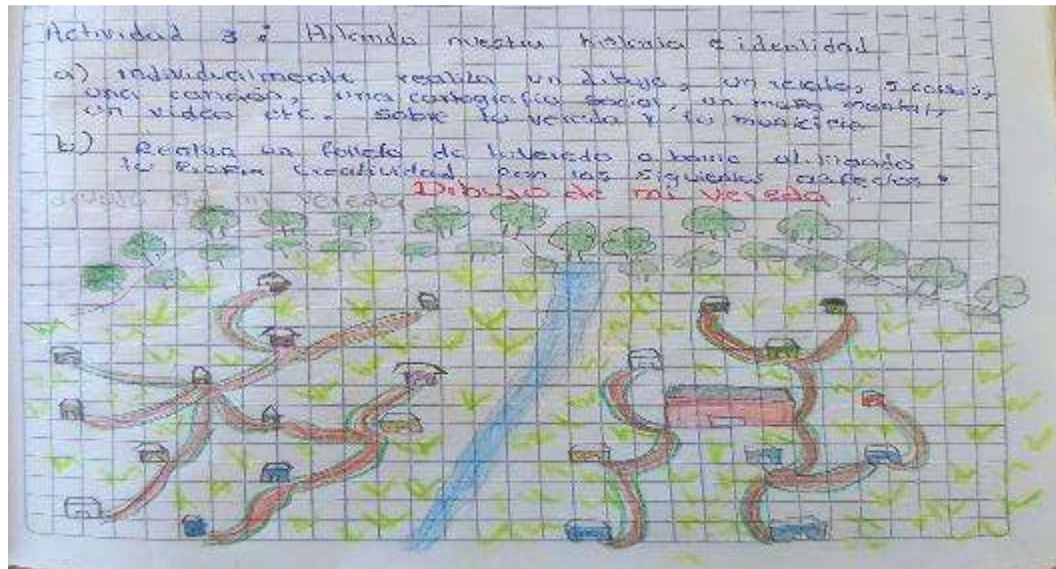 Actividad 3: Hilando nuestra historia e identidad
a) individualmente realiza un dibujo, un relato, 5 coplas,
una canción, una cartografía social, un mapa mental,
un video etc. sobre tu vereda y tu municipio
b) Realiza un folleto de tu vereda o barrio utilizando
tu propia creatividad con los siguientes aspectos
Dibujo de mi vereda.
de mi vereda